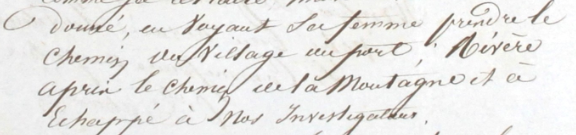 donné, en voyant sa femme prendre le
chemin du village au port ; Rivère
a pris le chemin de la Montagne et a
Echappé à Nos Investigations.